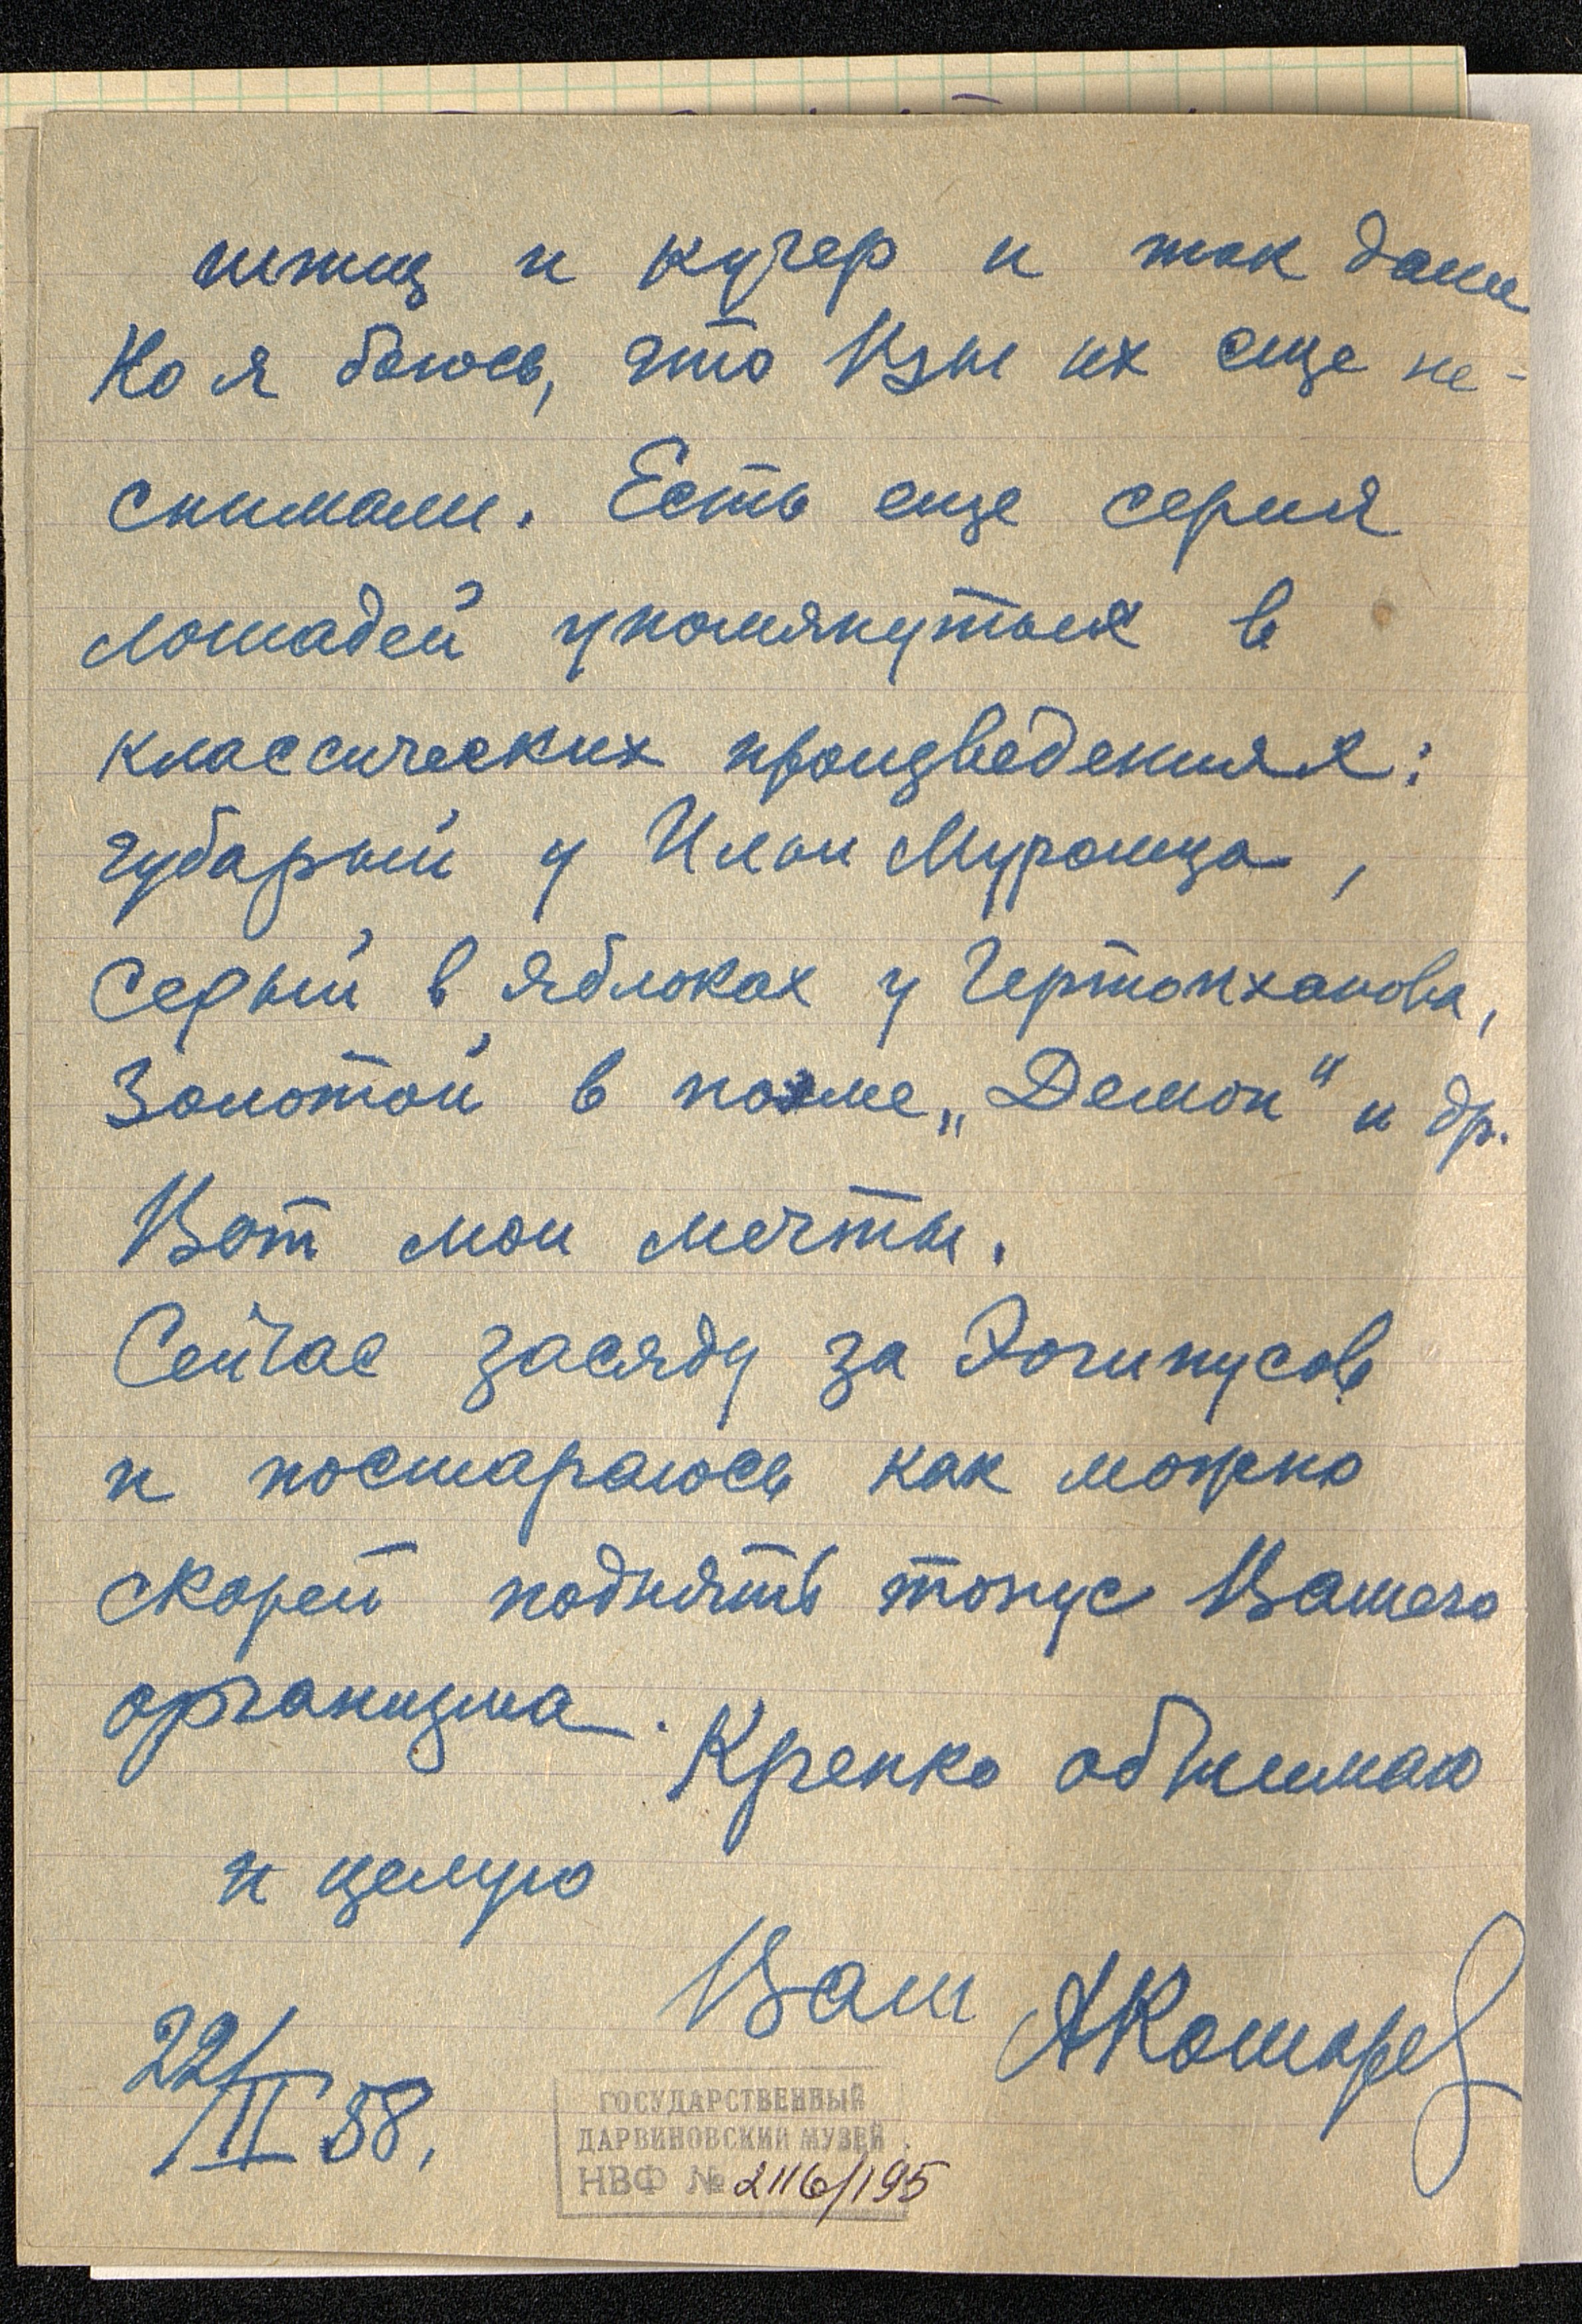 птиц и кучер и так дале
Но я боюсь, что Вы их еще не-
снимали. Есть еще серия
лошадей упомянутых в
классических произведениях:
чубарый у Ильи Муромца,
Серый в яблоках у Чертопханова,
Золотой в поэме „Демон" и др.
Вот мои мечты.
Сейчас засяду за Логипусов
и постараюсь как можно
скорей поднять тонус Вашего
организма.
Крепко обнимаю
и целую
Ваш АКомаров
22/II 58.
ГОСУДАРСТВЕННЫЙ
ДАРВИНОВСКИЙ МУЗЕЙ
НВФ № 2116/195